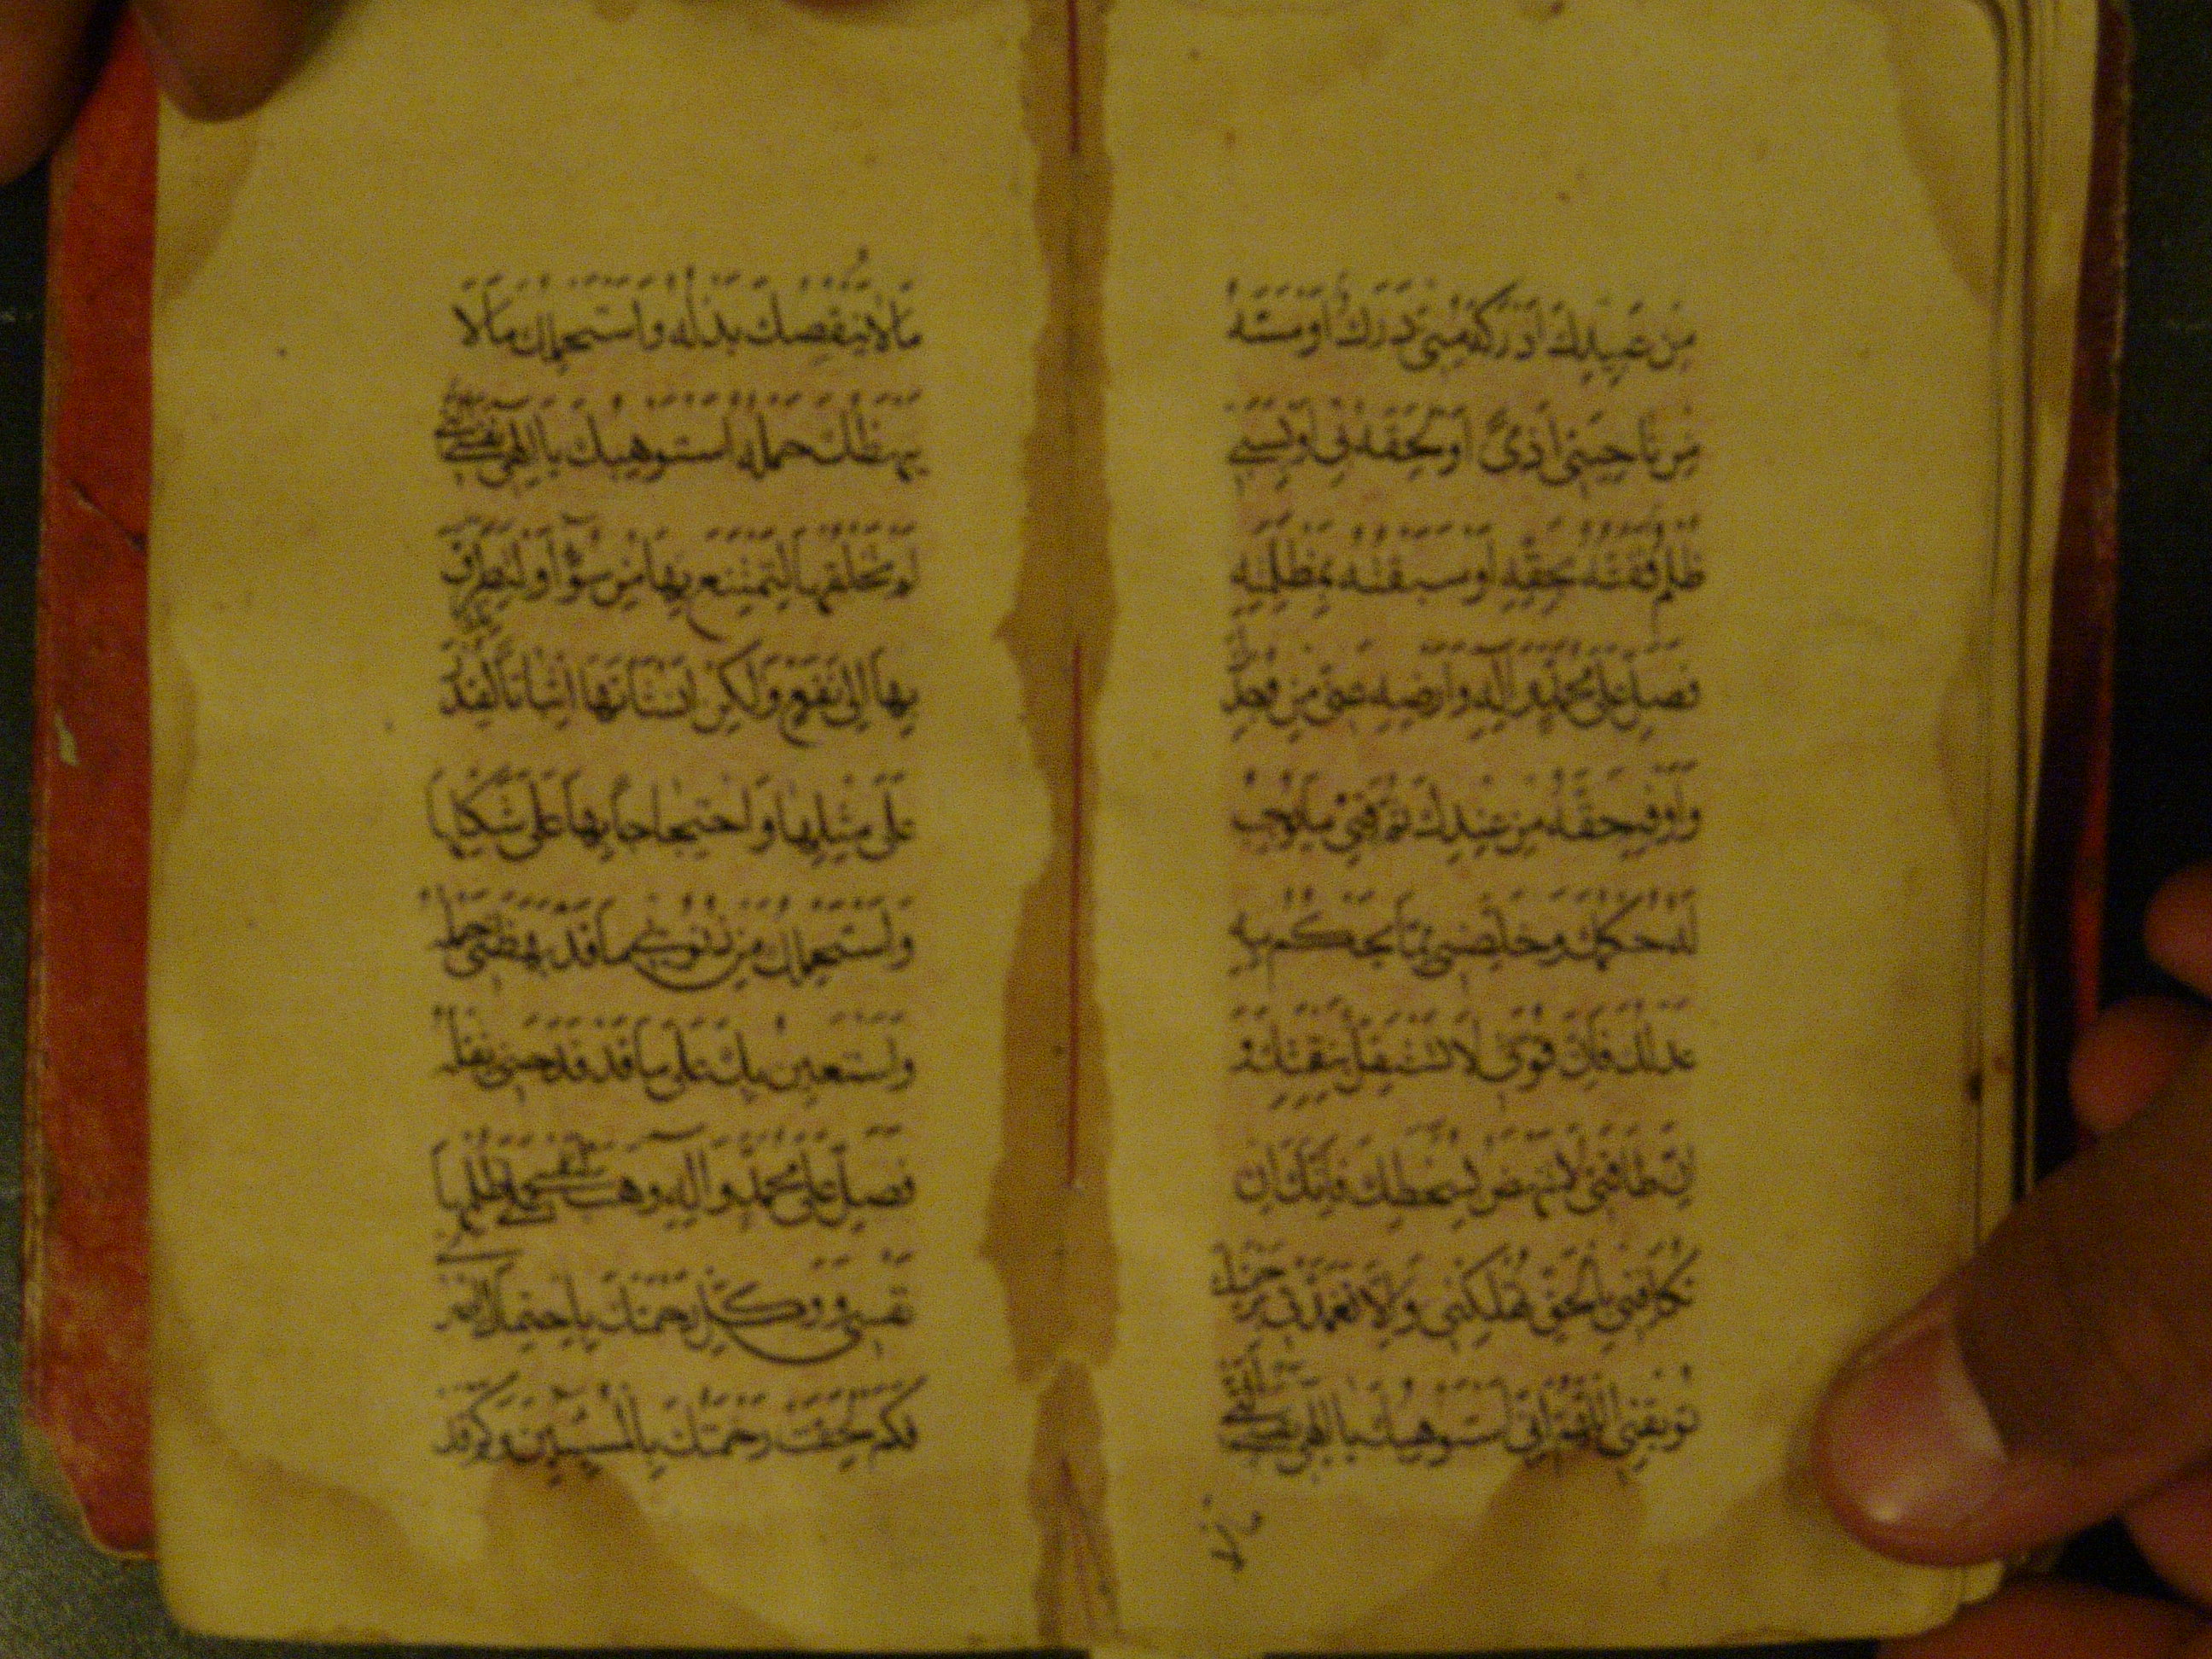 مِنْ عَبِيدِكَ اَدْرَكَهُ مِنّي دَرَكٌ اَوْ مَسَّهُ
مِنْ ناحِيَتي اَذًى اَوْ لَحِقَهُ بي اَوْ بِسَبَبي
ظُلْمٌ فَفُتُّهُ بِحَقِّهِ اَوْ سَبَقْتُهُ بِمَظْلِمَتِهِ
فَصَلِّ عَلى مُحَمَّدٍ وَآلِهِ وَاَرْضِهِ عَنّي مِنْ وُجْدِكَ
وَاَوْفِهِ حَقَّهُ مِنْ عِنْدِكَ ثُمَّ قِني ما يُوجِبُ
لَهُ حُكْمُكَ وَخَلِّصْني مِمّا يَحْكُمُ بِهِ
عَدْلُكَ فَاِنَّ قُوَّتي لا تَسْتَقِلُّ بِنِقْمَتِكَ وَ
اِنَّ طاقَتي لا تَنْهَضُ بِسَخَطِكَ فَاِنَّكَ اِنْ
تُكافِني بِالْحَقِّ تُهْلِكْني وَاِلّا تَغَمَّدْني بِرَحْمَتِكَ
تُوبِقْني اَللّهُمَّ اِنّي اَسْتَوْهِبُكَ يا اِلهي
مالا
مالا يَنْقُصُكَ بَذْلُهُ وَاَسْتَحْمِلُكَ مالا
يَبْهَظُكَ حَمْلُهُ اَسْتَوْهِبُكَ يا اِلهي نَفْسِيَ الَّتي
لَمْ تَخْلُقْها لِتَمْتَنِعَ بِها مِنْ سُوءٍ اَوْ لِتَطَرَّقَ
بِها اِلى نَفْعٍ وَلكِنْ اَنْشَأْتَها اِثْباتاً لِقُدْرَتِكَ
عَلى مِثْلِها وَاحْتِجاجاً بِها عَلى شَكْلِها
وَاَسْتَحْمِلُكَ مِنْ ذُنُوبي ما قَدْ بَهَظَني حَمْلُهُ
وَاَسْتَعينُ بِكَ عَلى ما قَدْ فَدَحَني ثِقْلُهُ
فَصَلِّ عَلى مُحَمَّدٍ وَآلِهِ وَهَبْ لِنَفْسي عَلى ظُلْمِها
نَفْسي وَوَكِّلْ رَحْمَتَكَ بِاحْتِمالِ اِصْري
فَكَمْ لَحِقَتْ رَحْمَتُكَ بِالْمُسيئينَ وَكَمْ قَدْ